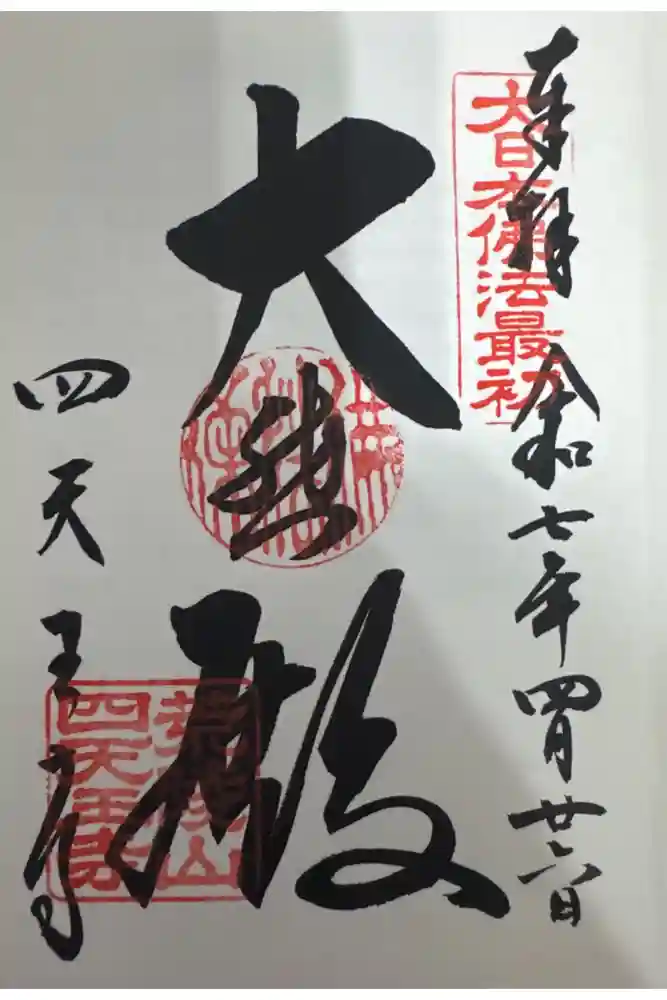 奉拝 令和七年四月廿六日
大日本佛法最初
大悲殿
四天王寺
荒陵山
四天王寺